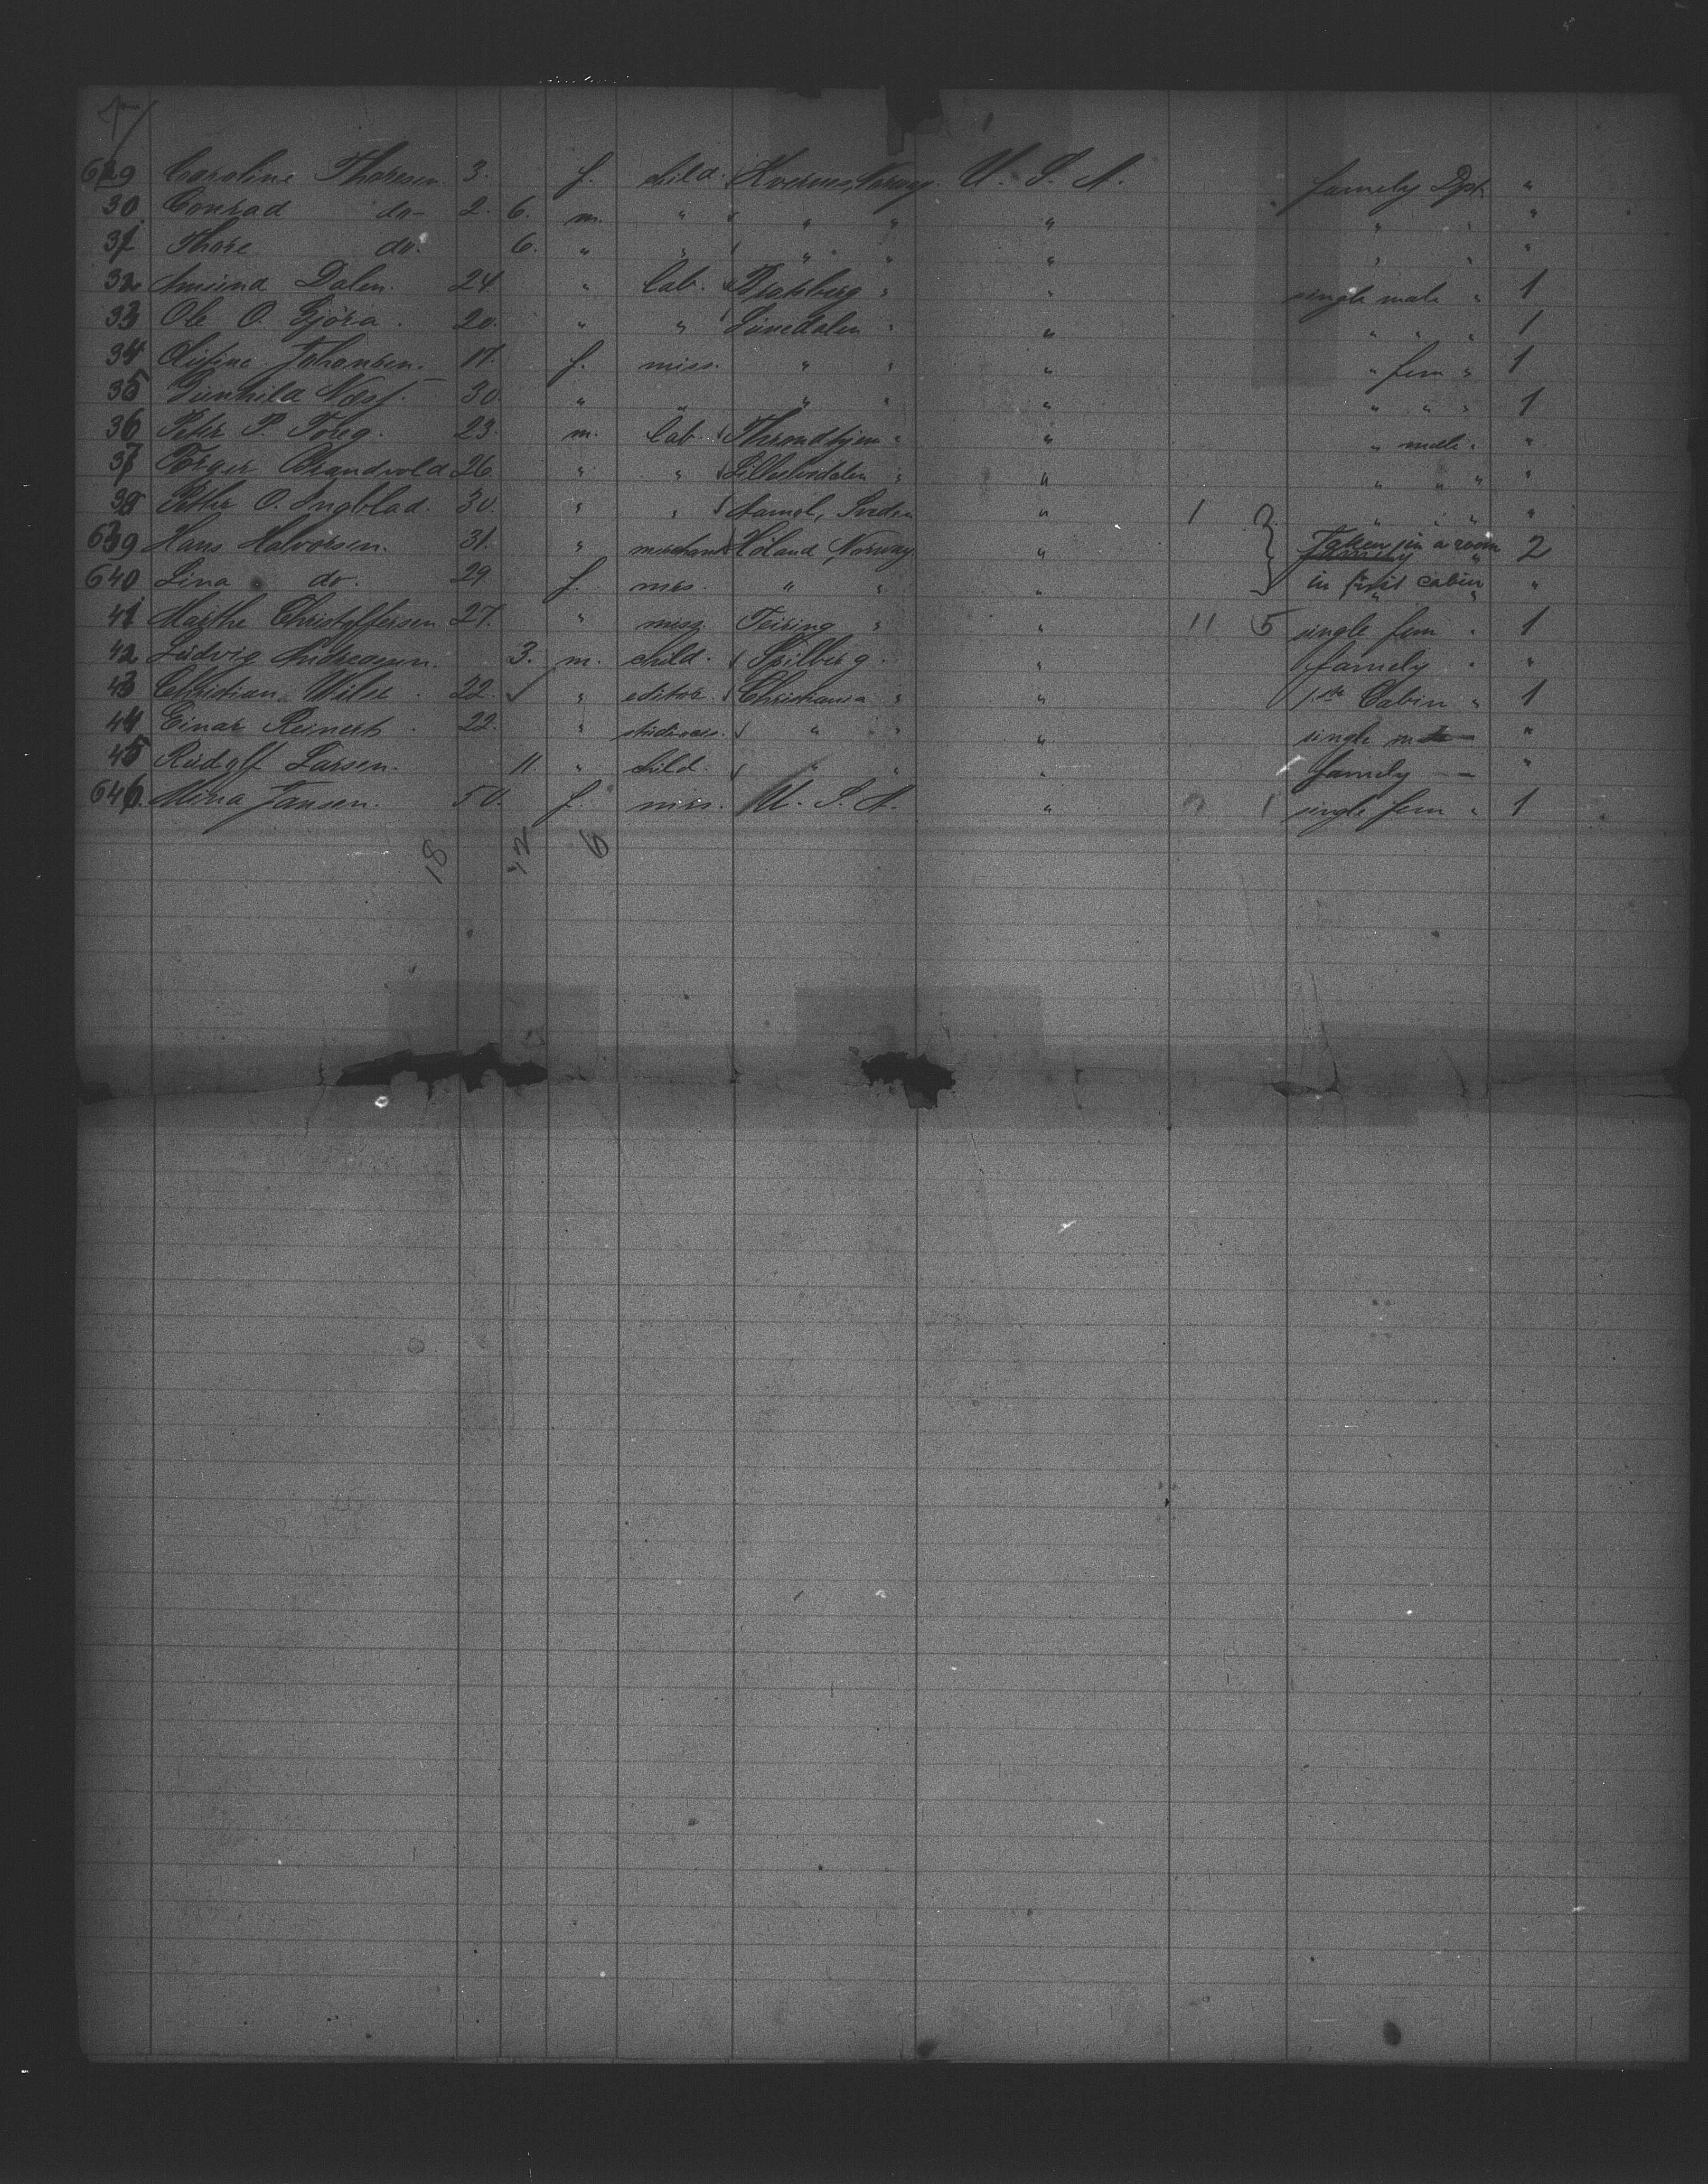 629 Caroline Thoresen. 3. f. child. Kvernes, Norway. U. S. A. family Dpt. "
30. Conrad do- 2. 6. m. " " " " " " "
31 Thore do. 6. " " " " " " " "
32 Amund Dalen. 24. " lab. Bratsberg " " single male " 1
33 Ole O. Gjöra. 20. " " Sunedalen " " " " " 1
34 Johansen. 17. f. miss. " " " " fem " 1
35 Gunhild 30. " " " " " " " " 1
36 Peter P. 23. m. lab. Throndhjem " " " male " "
37 Brandvold 26. " " " " " " " "
38 Peter O. 30. " " " 1 " " " "
639 Hans Halvorsen. 31. " merchant Höland, Norway " 2 } Taken in a room 2
640 Lina do. 29. f. mrs. " " " in first cabin "
41 Marthe Christoffersen 27. " miss. Feiring " " 11 5 single fem " 1
42 Ludvig Andreasen. 3. m. child. Spilberg. " family " "
43 Christian 22. " editor. Christiania " " 1ste Cabin " 1
44 Einar Reinert. 22. " " " " single "
45 Rudolf Larsen. 11. " child. " " " family — "
646 Mina Jansen. 50. f. mrs. U. S. A. " 1 single fem " 1
18 6